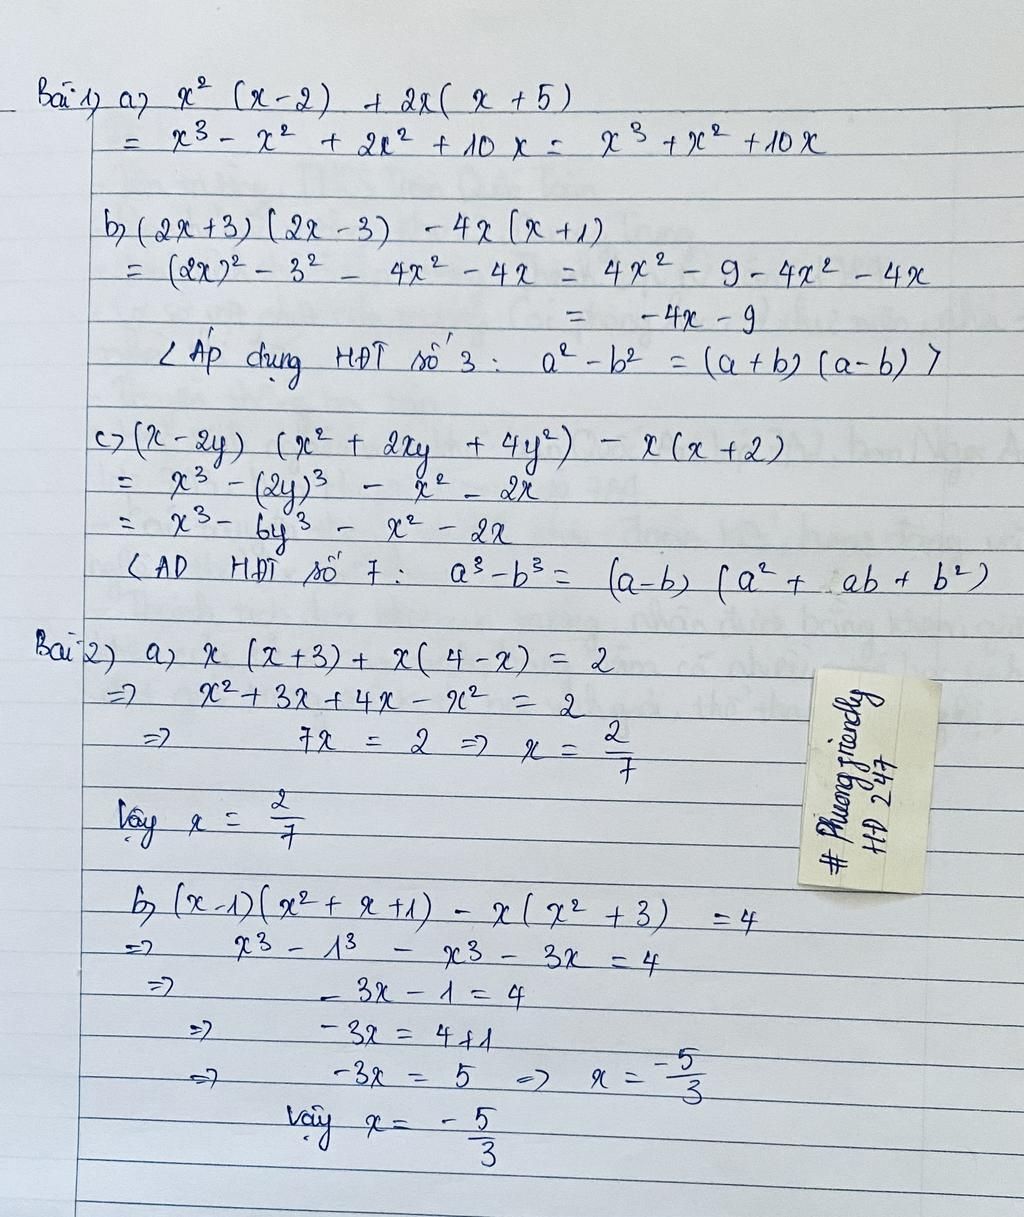 Bài 1) a) x² (x - 2) + 2x( x + 5)
= x³ - x² + 2x² + 10 x = x³ + x² + 10x
b) (2x + 3) (2x - 3) - 4x (x + 1)
= (2x)² - 3² - 4x² - 4x = 4x² - 9 - 4x² - 4x
= -4x - 9
< Áp dụng HĐT số 3 : a² - b² = (a + b) (a - b) >
c) (x - 2y) (x² + 2xy + 4y²) - x(x + 2)
= x³ - (2y)³ - x² - 2x
= x³ - 6y³ - x² - 2x
< AD HĐT số 7 : a³ - b³ = (a - b) (a² + ab + b²)
Bài 2) a) x (x + 3) + x( 4 - x) = 2
=> x² + 3x + 4x - x² = 2
=> 7x = 2 => x = 2/7
Vậy x = 2/7
# Phuong friendly
HD 247
b) (x - 1)(x² + x + 1) - x( x² + 3) = 4
=> x³ - 1³ - x³ - 3x = 4
=> - 3x - 1 = 4
=> - 3x = 4 + 1
=> -3x = 5 => x = -5/3
Vậy x = - 5/3